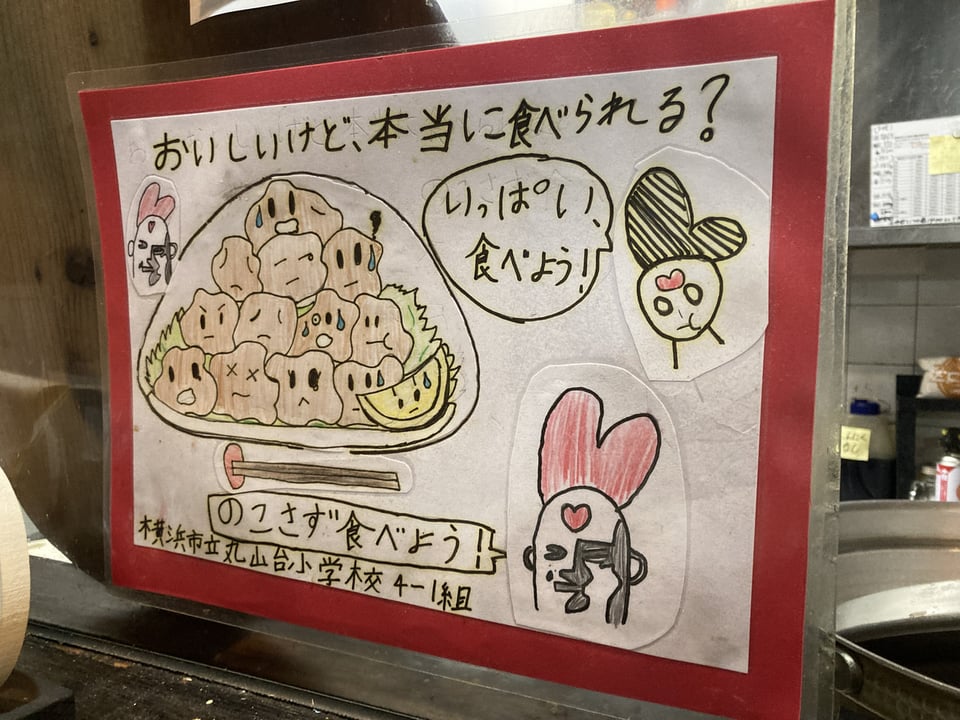 おいしいけど、本当に食べられる?
いっぱい、
食べよう!
のこさず食べよう!!
横浜市立丸山台小学校 4-1組